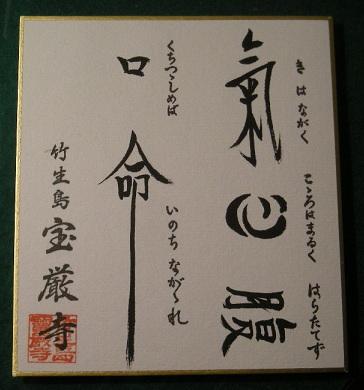 きはながく こころはまるく はらたてず
氣 心 腹
くちつゝしめば いのちながゝれ
口 命
竹生島 宝厳寺